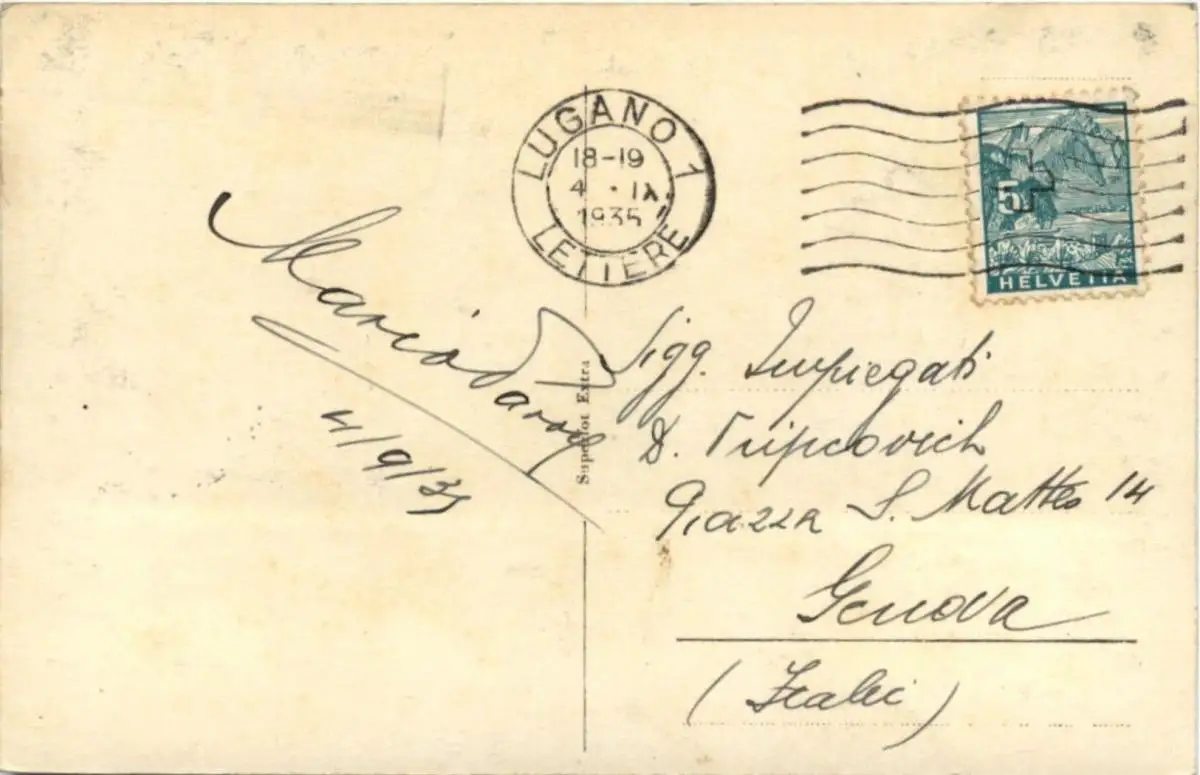 LUGANO 1
18-19
4 · IX
1935
LETTERE
5
HELVETIA
Mario
4/9/35
Superfot Extra
Sigg. Impiegati
D. Tripcovich
Piazza S. Matteo 14
Genova
(Italie)